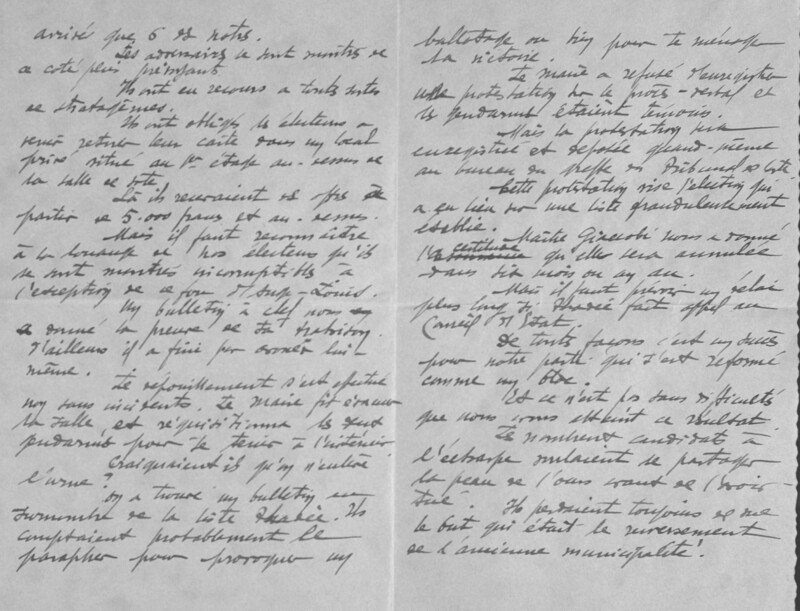 arrivé que 5 de notre.
Les adversaires se sont montrés de
ce coté plus
Ils ont eu recours a toutes sortes
de stratagèmes.
Ils ont obligé les électeurs a
venir retirer leur carte dans un local
privé situé au 1er étage au-dessus de
la salle de vote.
Là ils recevaient des offres de
partir de 5.000 francs et au-dessus.
Mais il faut reconnaître
à la louange de nos électeurs qu'ils
se sont montrés incorruptibles à
l'exception de ce d'Ange-Louis.
Un bulletin à clef nous en
a donné la preuve de sa trahison.
D'ailleurs il a fini par avouer lui
même.
Le dépouillement s'est effectué
non sans incidents. Le maire fit évacuer
la salle et réquisitionna les deux
gendarmes pour se tenir à l'intérieur.
Craignaient ils qu'on n'enlève
l'urne?
On a trouvé un bulletin en
surnombre de la liste. Ils
comptaient probablement le
parapher pour provoquer un
ballotage ou bien pour te ménager
la victoire.
Le maire a refusé d'enregistrer
une protestation sur le procès-verbal et
les gendarmes étaient témoins.
Mais la protestation sera
enregistrée et déposée quand-même
au bureau du greffe du Tribunal
Cette protestation vise l'élection qui
a eu lieu sur une liste frauduleusement
établie.
Maître Giacobi nous a donné
l'a certitude qu'elle sera annulée
dans six mois ou un an.
Mais il faut prévoir un délai
plus long si fait appel au
Conseil d'Etat.
De toutes façons c'est un succès
pour notre parti qui s'est reformé
comme un bloc.
Et ce n'est pas sans difficulté
que nous avons atteint ce résultat.
Les nombreux candidats à
l'écharpe voulaient se partager
la peau de l'ours avant de l'avoir
tué. Ils perdaient toujours de vue
le but qui était le renversement
de l'ancienne municipalité.